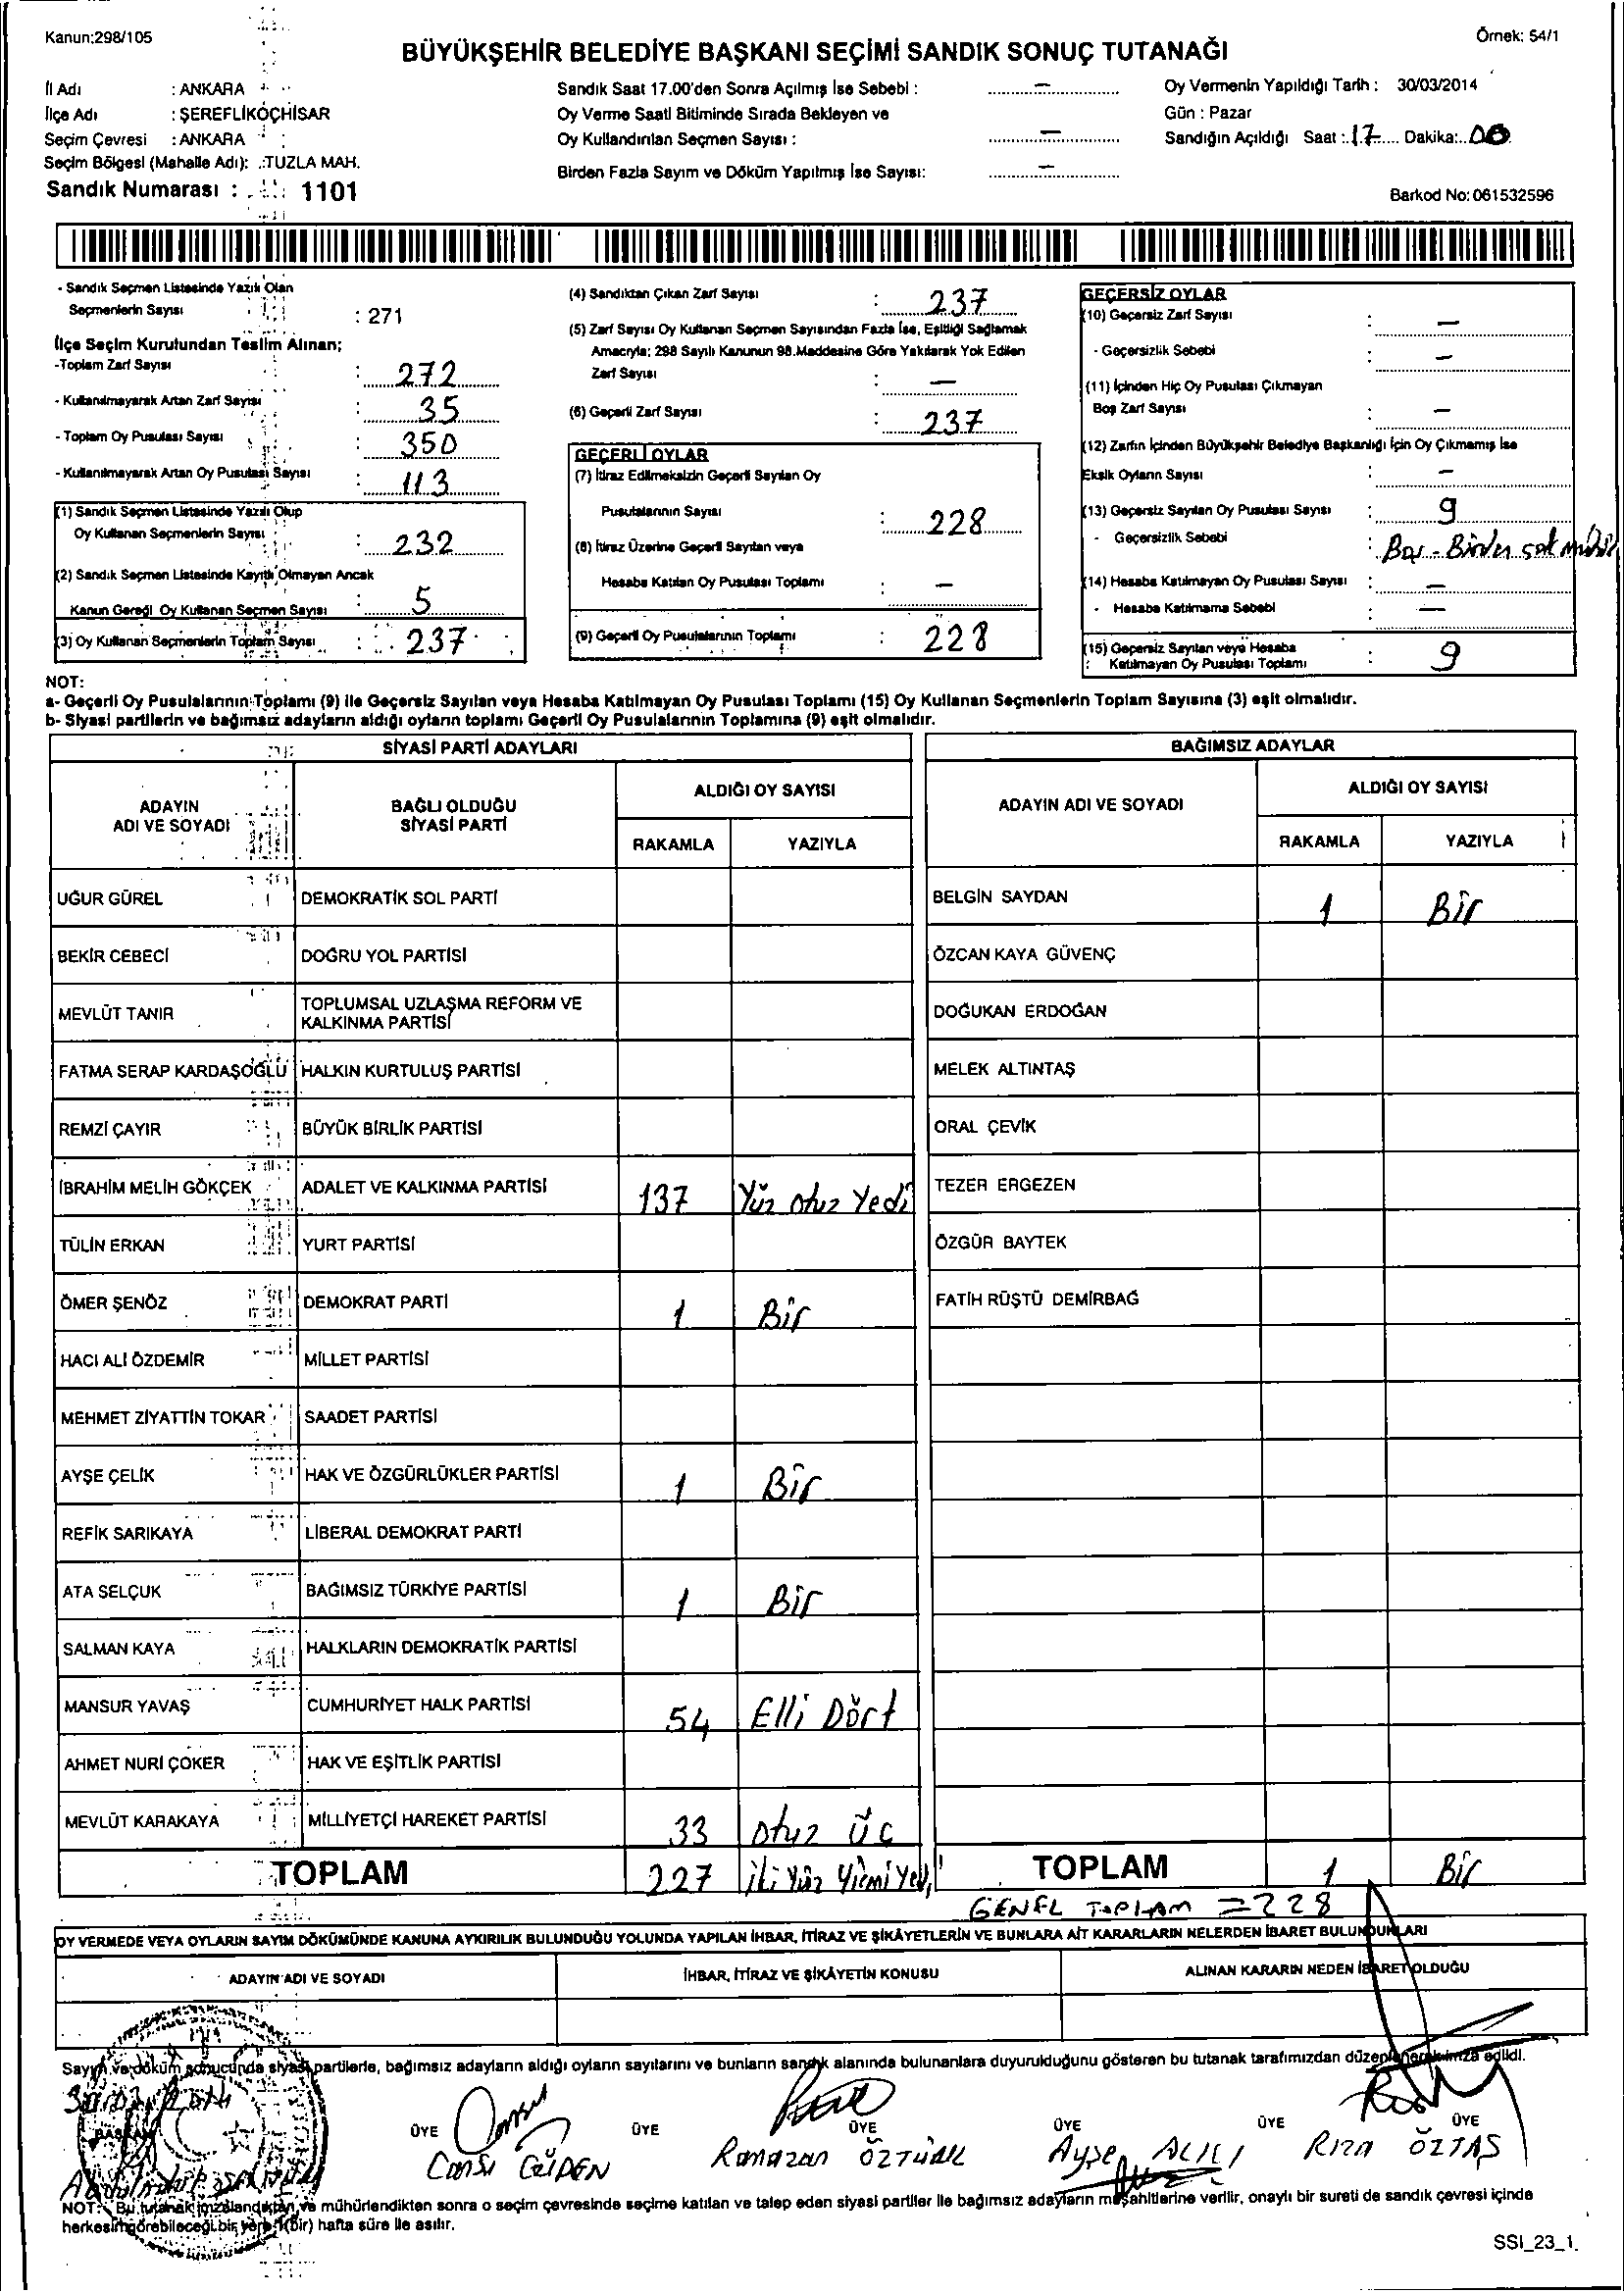 Kanun:298/105
Örnek: 54/1
BÜYÜKŞEHİR BELEDİYE BAŞKANI SEÇİMİ SANDIK SONUÇ TUTANAĞI
İl Adı : ANKARA
İlçe Adı : ŞEREFLİKOÇHİSAR
Seçim Çevresi : ANKARA
Seçim Bölgesi (Mahalle Adı): .:TUZLA MAH.
Sandık Numarası : 1101
Sandık Saat 17.00'den Sonra Açılmış İse Sebebi : –
Oy Verme Saati Bitiminde Sırada Bekleyen ve
Oy Kullandırılan Seçmen Sayısı : –
Birden Fazla Sayım ve Döküm Yapılmış İse Sayısı: –
Oy Vermenin Yapıldığı Tarih : 30/03/2014
Gün : Pazar
Sandığın Açıldığı Saat : 17 Dakika: 00
Barkod No: 061532596
- Sandık Seçmen Listesinde Yazılı Olan
Seçmenlerin Sayısı : 271
İlçe Seçim Kurulundan Teslim Alınan;
-Toplam Zarf Sayısı : 272
- Kullanılmayarak Artan Zarf Sayısı : 35
- Toplam Oy Pusulası Sayısı : 350
- Kullanılmayarak Artan Oy Pusulası Sayısı : 113
(1) Sandık Seçmen Listesinde Yazılı Olup
Oy Kullanan Seçmenlerin Sayısı : 232
(2) Sandık Seçmen Listesinde Kayıtlı Olmayan Ancak
Kanun Gereği Oy Kullanan Seçmen Sayısı : 5
(3) Oy Kullanan Seçmenlerin Toplam Sayısı : 237
(4) Sandıktan Çıkan Zarf Sayısı : 237
(5) Zarf Sayısı Oy Kullanan Seçmen Sayısından Fazla İse, Eşitliği Sağlamak
Amacıyla; 298 Sayılı Kanunun 98.Maddesine Göre Yakılarak Yok Edilen
Zarf Sayısı : –
(6) Geçerli Zarf Sayısı : 237
GEÇERLİ OYLAR
(7) İtiraz Edilmeksizin Geçerli Sayılan Oy
Pusulalarının Sayısı : 228
(8) İtiraz Üzerine Geçerli Sayılan veya
Hesaba Katılan Oy Pusulası Toplamı : –
(9) Geçerli Oy Pusulalarının Toplamı : 228
GEÇERSİZ OYLAR
(10) Geçersiz Zarf Sayısı : –
- Geçersizlik Sebebi : –
(11) İçinden Hiç Oy Pusulası Çıkmayan
Boş Zarf Sayısı : –
(12) Zarfın İçinden Büyükşehir Belediye Başkanlığı İçin Oy Çıkmamış İse
Eksik Oyların Sayısı : –
(13) Geçersiz Sayılan Oy Pusulası Sayısı : 9
- Geçersizlik Sebebi : Boş - Birden çok mühür
(14) Hesaba Katılmayan Oy Pusulası Sayısı : –
- Hesaba Katılmama Sebebi : –
(15) Geçersiz Sayılan veya Hesaba
Katılmayan Oy Pusulası Toplamı : 9
NOT:
a- Geçerli Oy Pusulalarının Toplamı (9) ile Geçersiz Sayılan veya Hesaba Katılmayan Oy Pusulası Toplamı (15) Oy Kullanan Seçmenlerin Toplam Sayısına (3) eşit olmalıdır.
b- Siyasi partilerin ve bağımsız adayların aldığı oyların toplamı Geçerli Oy Pusulalarının Toplamına (9) eşit olmalıdır.
SİYASİ PARTİ ADAYLARI
ADAYIN ADI VE SOYADI
BAĞLI OLDUĞU SİYASİ PARTİ
ALDIĞI OY SAYISI
RAKAMLA YAZIYLA
UĞUR GÜREL DEMOKRATİK SOL PARTİ
BEKİR CEBECİ DOĞRU YOL PARTİSİ
MEVLÜT TANIR TOPLUMSAL UZLAŞMA REFORM VE
KALKINMA PARTİSİ
FATMA SERAP KARDAŞOĞLU HALKIN KURTULUŞ PARTİSİ
REMZİ ÇAYIR BÜYÜK BİRLİK PARTİSİ
İBRAHİM MELİH GÖKÇEK ADALET VE KALKINMA PARTİSİ 137 Yüz otuz Yedi
TÜLİN ERKAN YURT PARTİSİ
ÖMER ŞENÖZ DEMOKRAT PARTİ 1 Bir
HACI ALİ ÖZDEMİR MİLLET PARTİSİ
MEHMET ZİYATTİN TOKAR SAADET PARTİSİ
AYŞE ÇELİK HAK VE ÖZGÜRLÜKLER PARTİSİ 1 Bir
REFİK SARIKAYA LİBERAL DEMOKRAT PARTİ
ATA SELÇUK BAĞIMSIZ TÜRKİYE PARTİSİ 1 Bir
SALMAN KAYA HALKLARIN DEMOKRATİK PARTİSİ
MANSUR YAVAŞ CUMHURİYET HALK PARTİSİ 54 Elli Dört
AHMET NURİ ÇÖKER HAK VE EŞİTLİK PARTİSİ
MEVLÜT KARAKAYA MİLLİYETÇİ HAREKET PARTİSİ 33 otuz üç
TOPLAM 227 iki Yüz Yirmi Yedi
BAĞIMSIZ ADAYLAR
ADAYIN ADI VE SOYADI
ALDIĞI OY SAYISI
RAKAMLA YAZIYLA
BELGİN SAYDAN 1 Bir
ÖZCAN KAYA GÜVENÇ
DOĞUKAN ERDOĞAN
MELEK ALTINTAŞ
ORAL ÇEVİK
TEZER ERGEZEN
ÖZGÜR BAYTEK
FATİH RÜŞTÜ DEMİRBAĞ
TOPLAM 1 Bir
GENEL TOPLAM = 228
OY VERMEDE VEYA OYLARIN SAYIM DÖKÜMÜNDE KANUNA AYKIRILIK BULUNDUĞU YOLUNDA YAPILAN İHBAR, İTİRAZ VE ŞİKÂYETLERİN VE BUNLARA AİT KARARLARIN NELERDEN İBARET BULUNDUKLARI
ADAYIN ADI VE SOYADI İHBAR, İTİRAZ VE ŞİKÂYETİN KONUSU ALINAN KARARIN NEDEN İBARET OLDUĞU
Sayım ve döküm sonucunda siyasi partilerle, bağımsız adayların aldığı oyların sayılarını ve bunların sandık alanında bulunanlara duyurulduğunu gösteren bu tutanak tarafımızdan düzenlenerek imza edildi.
BAŞKAN ÜYE ÜYE ÜYE ÜYE ÜYE ÜYE
Cansu Ramazan ÖZTÜRK Ayşe ALICI Rıza ÖZTAŞ
NOT: Bu tutanak imzalandıktan ve mühürlendikten sonra o seçim çevresinde seçime katılan ve talep eden siyasi partiler ile bağımsız adayların müşahitlerine verilir, onaylı bir sureti de sandık çevresi içinde
herkesin görebileceği bir yere 1(bir) hafta süre ile asılır.
SSI_23_1.